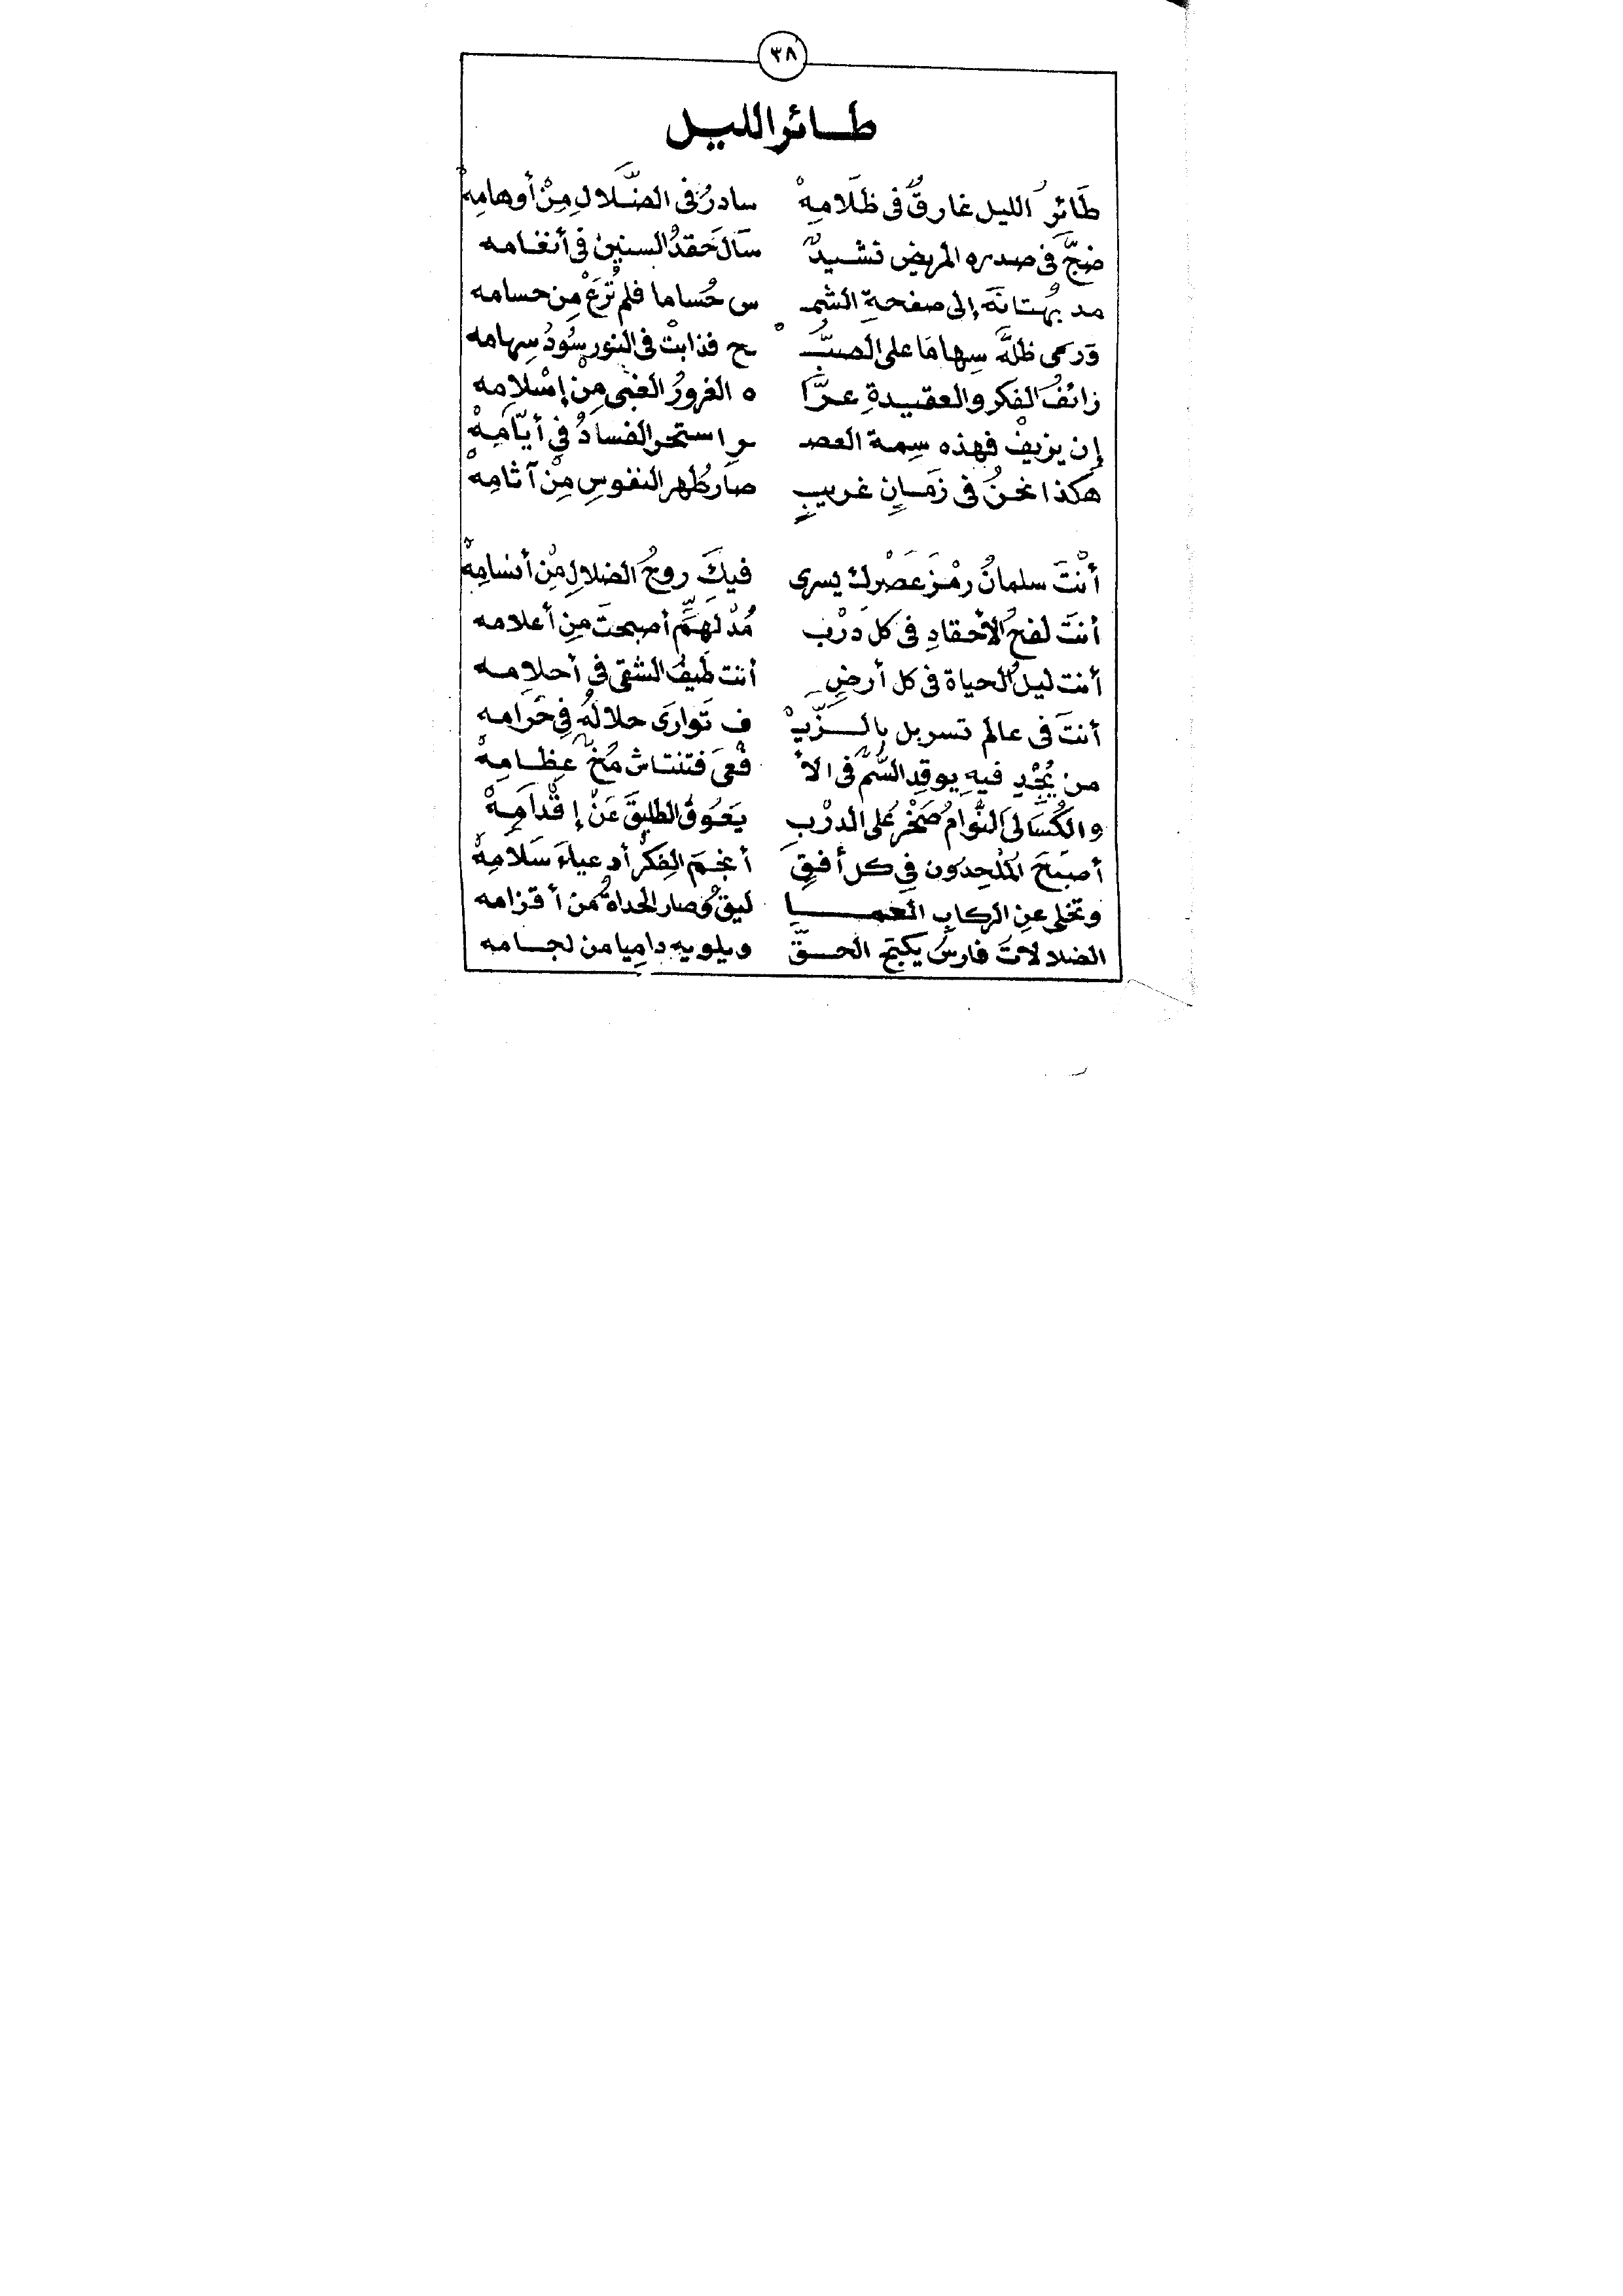 ٣٨
طائر الليل
طَائرُ الليل غارقٌ فى ظَلَامِهْ سادرُ فى الضَّلالِ مِنْ أوهامِهْ
ضجَّ فى صدره المريض نشيدٌ سَالَ حَقدُ السنين فى أنغامه
مد بُهتانَه إلى صفحةِ الشمـ س حُساما فلم تُرَعْ مِن حسامه
وَرمى ظلَّه سِهامًا على الصبْـ ـح فذابتْ فى النور سُودُ سِهامه
زائفُ الفكر والعقيدةِ عرَّا ه الغرورُ الغبى مِنْ إسْلامِه
إن يزيفْ فهذه سِمة العصـ ـر استحر الفسادُ فِي أيّامَِهْ
هكذا نحنُ فى زمَانٍ غريبٍ صار طُهر النفوسِ مِنْ آثامِهْ
أنْتَ سلمانُ رمْزَ عَصْرك يسرى فيكَ روحُ الضلالِ مِنْ أنسامِهْ
أنتَ لفحُ الأحقادِ فى كل دَرْب مُدْلَهِمٍّ أصبحتَ مِن أعلامه
أنت ليلُ الحياة فى كل أرضٍ أنت طَيفُ الشقى فى أحلامه
أنتَ فى عالم تسربل بالـزَّيـْ ـف تَوارَى حلالُهُ فِي حَرامه
من يُجْدِ فيهِ يوقِد السُّمّ فى الأ فْعَى فتنتاش مُخّ عِظامِهْ
والكُسَالىَ النُّوامُ صَخْرٌ على الدرْبِ يَعُوقُ الطليقَ عَنْ إقْدامَِهْ
أصبَحَ المُلْحِدُون فِي كل أفقٍ أنجمَ الفِكرْ أدعياءَ سَلَامِهْ
وتخلى عنِ الركابِ العمـــا ليقُ وصار الحداةُ من أقزامه
الضلالاتُ فارسٌ يكبح الحـقَّ ويلويه دامِيا من لجامه